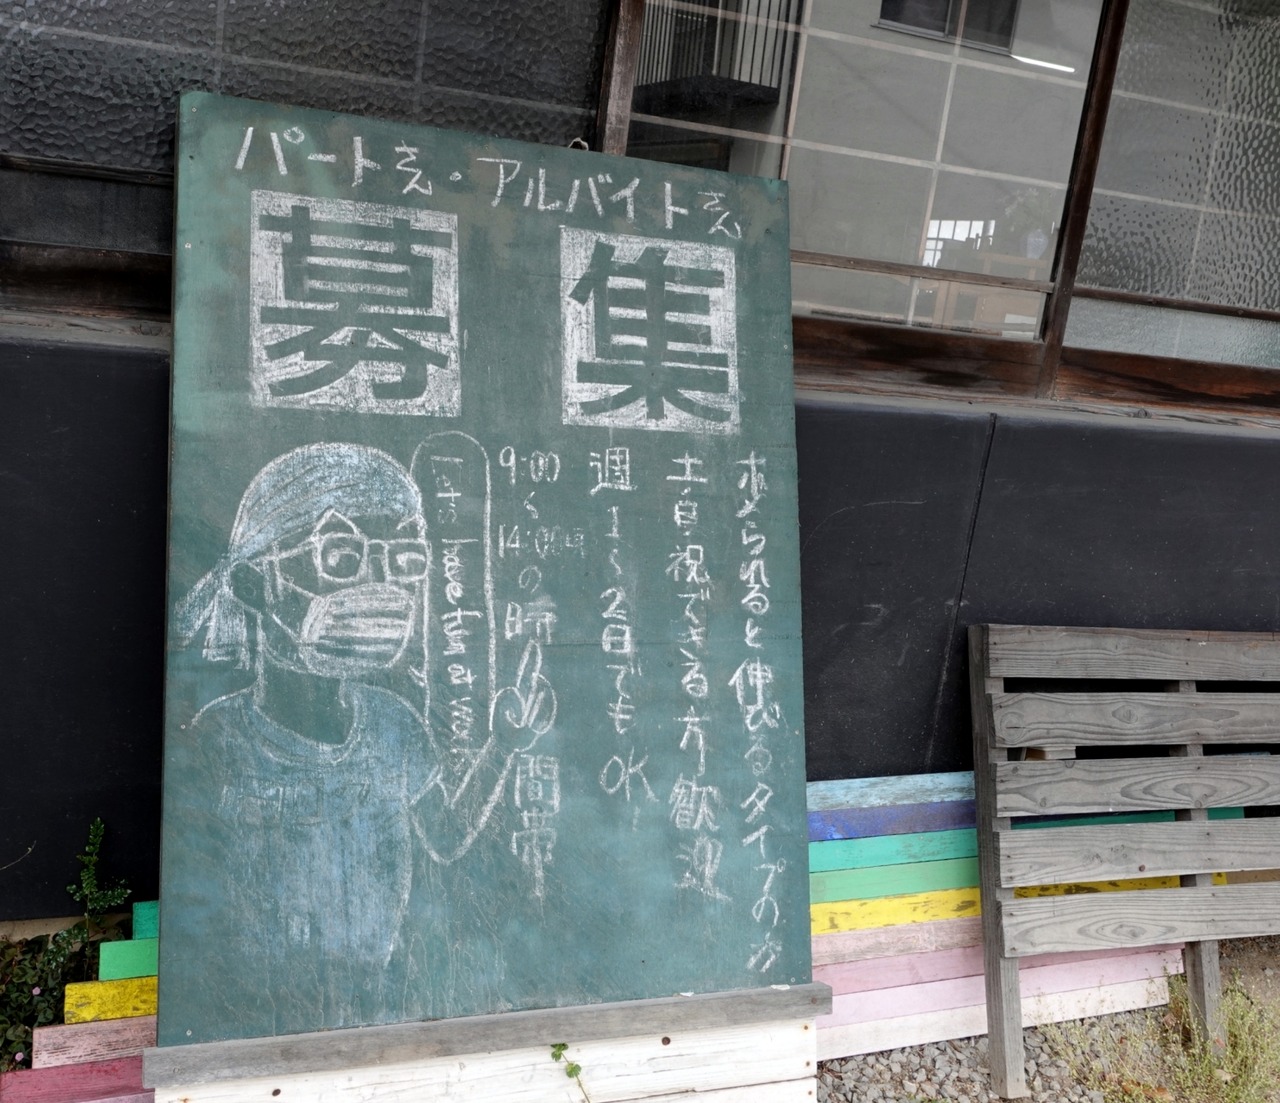 パートさん・アルバイトさん
募集
求められると伸びるタイプの方
土・日・祝できる方歓迎
週1〜2日でもOK
9:00〜14:00の時間帯
Let's have fun at work